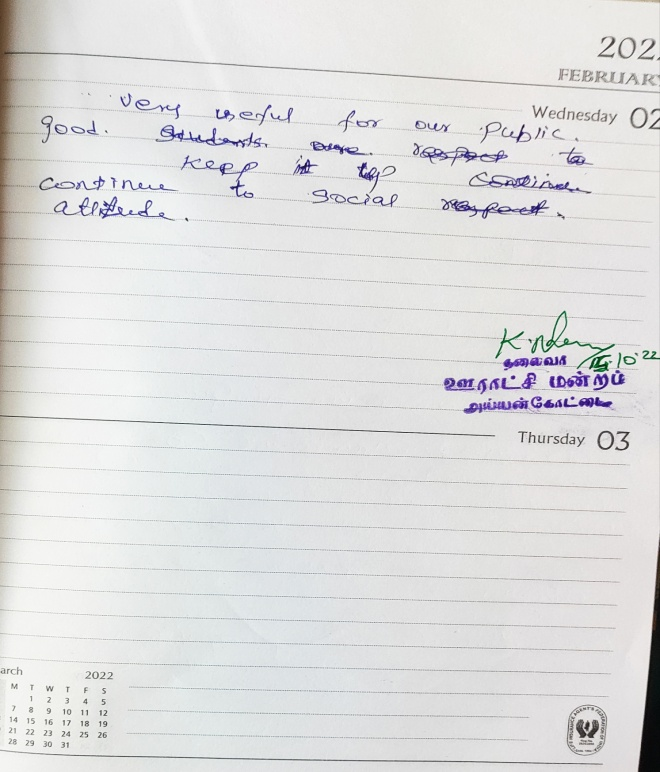 202
FEBRUARY
Wednesday 02
Very useful for our public.
good. Students are respect to
Keep it up continue
continue to social respect.
attitude.
10.22
தலைவர்
ஊராட்சி மன்றம்
அய்யன்கோட்டை
Thursday 03
arch 2022
M T W T F S
1 2 3 4 5
7 8 9 10 11 12
14 15 16 17 18 19
21 22 23 24 25 26
28 29 30 31